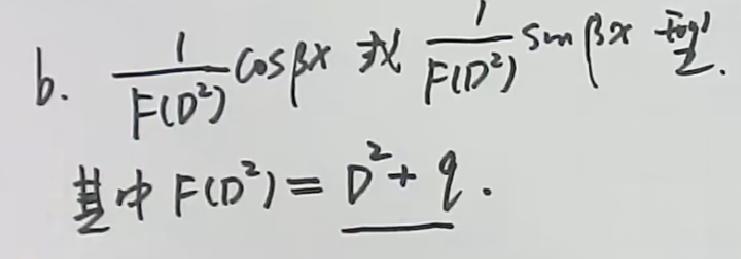 b. 1/F(D²) cosβx 或 1/F(D²) sinβx 型.
其中 F(D²) = D² + q.